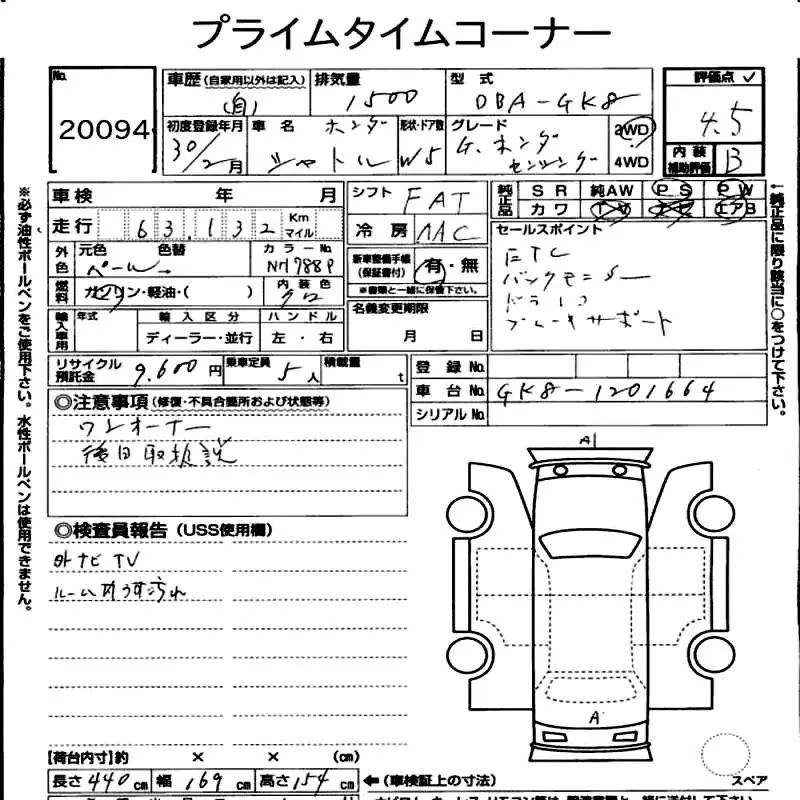 プライムタイムコーナー
No. 20094
車歴 (自家用以外は記入) 自
排気量 1500
型式 DBA-GK8
評価点 4.5
初度登録年月 30年/2月
車名 ホンダ シャトル
形状・ドア数 W5
グレード G.ホンダセンシング
2WD
4WD
内装補助評価 B
※必ず油性ボールペンをご使用下さい。水性ボールペンは使用できません。
車検 年 月
シフト FAT
純正品 SR 純AW PS PW
カワ TV ナビ エアB
↑純正品に限り該当に○をつけて下さい。
走行 63,132 Km マイル
冷房 AAC
セールスポイント
ETC
バックモニター
ドラレコ
ブレーキサポート
外色 元色 色替 パール
カラーNo. NH788P
新車整備手帳(保証書付) 有・無
※書類と一緒に保管下さい。
燃料 ガソリン・軽油・( )
内装色 クロ
名義変更期限
月 日
輸入車用 年式 輸入区分 ハンドル
ディーラー・並行 左・右
リサイクル預託金 9,600円
乗車定員 5人
積載量 t
登録No.
車台No. GK8-1201664
シリアルNo.
◎注意事項 (修復・不具合箇所および状態等)
ワンオーナー
後日取扱説
◎検査員報告 (USS使用欄)
外ナビTV
ルーム内うす汚れ
A
A
スペア
【荷台内寸】約 × × (cm)
長さ 440cm 幅 169cm 高さ 154cm ←(車検証上の寸法)